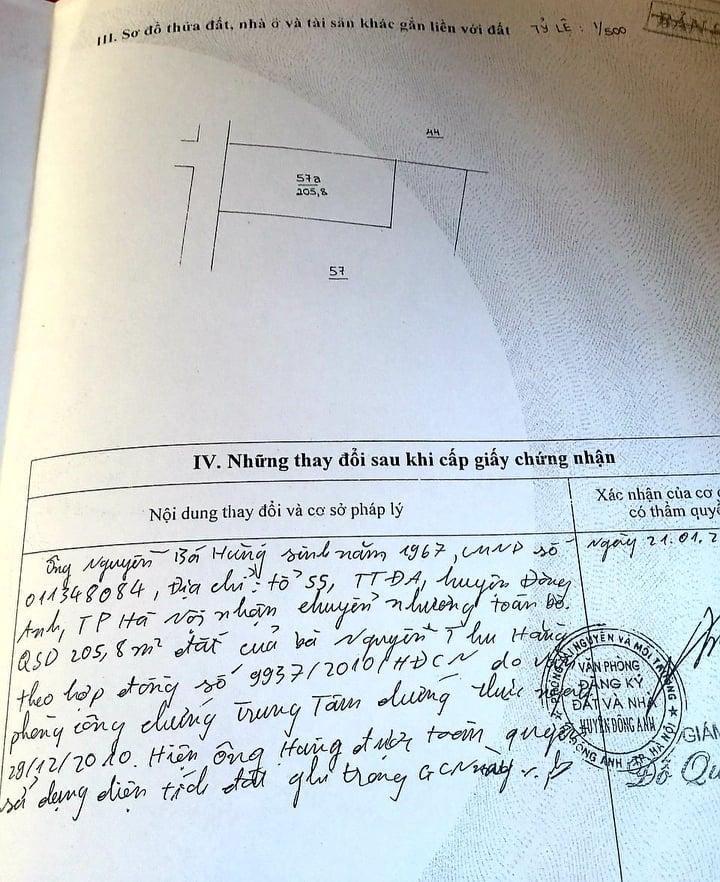 III. Sơ đồ thửa đất, nhà ở và tài sản khác gắn liền với đất TỶ LỆ : 1/500
BẢN
44
57a
205,8
57
IV. Những thay đổi sau khi cấp giấy chứng nhận
Nội dung thay đổi và cơ sở pháp lý
Xác nhận của cơ
có thẩm quyề
Ông Nguyễn Bá Hưng sinh năm 1967, CMND số
011348084, Địa chỉ: tổ 55, TTĐA, huyện Đông
Anh, TP Hà Nội nhận chuyển nhượng toàn bộ
QSD 205,8m² đất của bà Nguyễn Thu Hằng
theo hợp đồng số 9937/2010/HĐCN do văn
phòng công chứng Trung Tâm chứng thực ngày
28/12/2010. Hiện Ông Hưng được toàn quyền
sử dụng diện tích đất ghi trong GCN này
Ngày 21.01.2
PHÒNG TÀI NGUYÊN VÀ MÔI TRƯỜNG
VĂN PHÒNG
ĐĂNG KÝ
ĐẤT VÀ NHÀ
HUYỆN ĐÔNG ANH
ĐÔNG ANH - TP. HÀ NỘI
GIÁM
Đỗ Qu